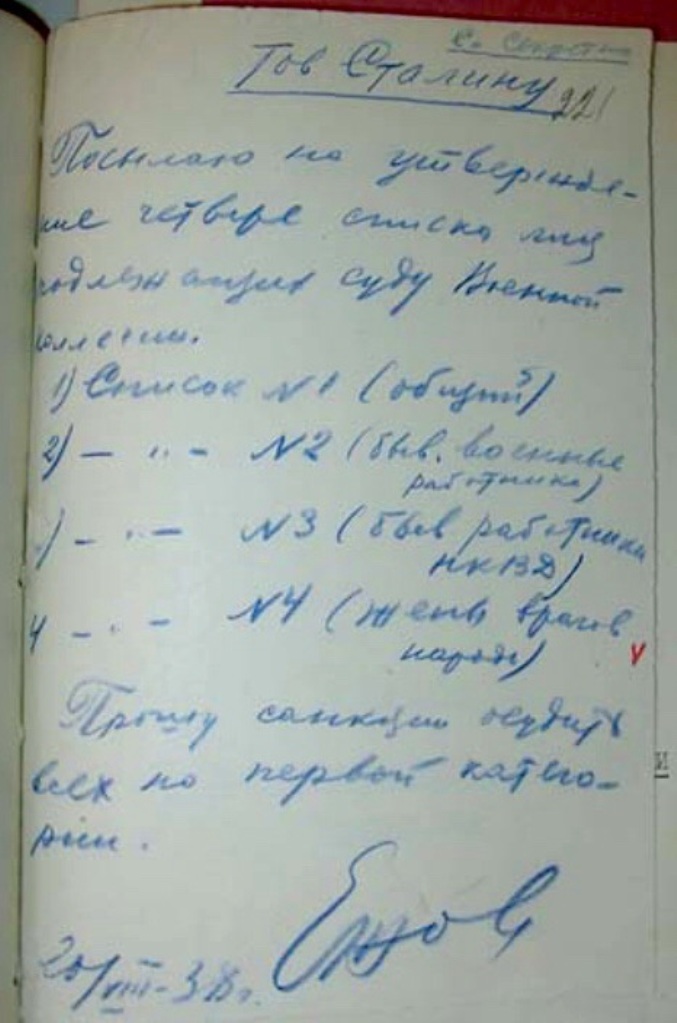 Сов Секретно
Тов Сталину
221
Посылаю на утвержде-
ние четыре списка лиц
подлежащих суду Военной
коллегии.
1) Список N1 (общий)
2) — " — N2 (быв. военные
работники)
) — " — N3 (быв работники
НКВД)
4 — " — N4 (жены врагов
народа)
Прошу санкции осудить
всех по первой катего-
рии.
Ежов
20/VIII-38г.
И